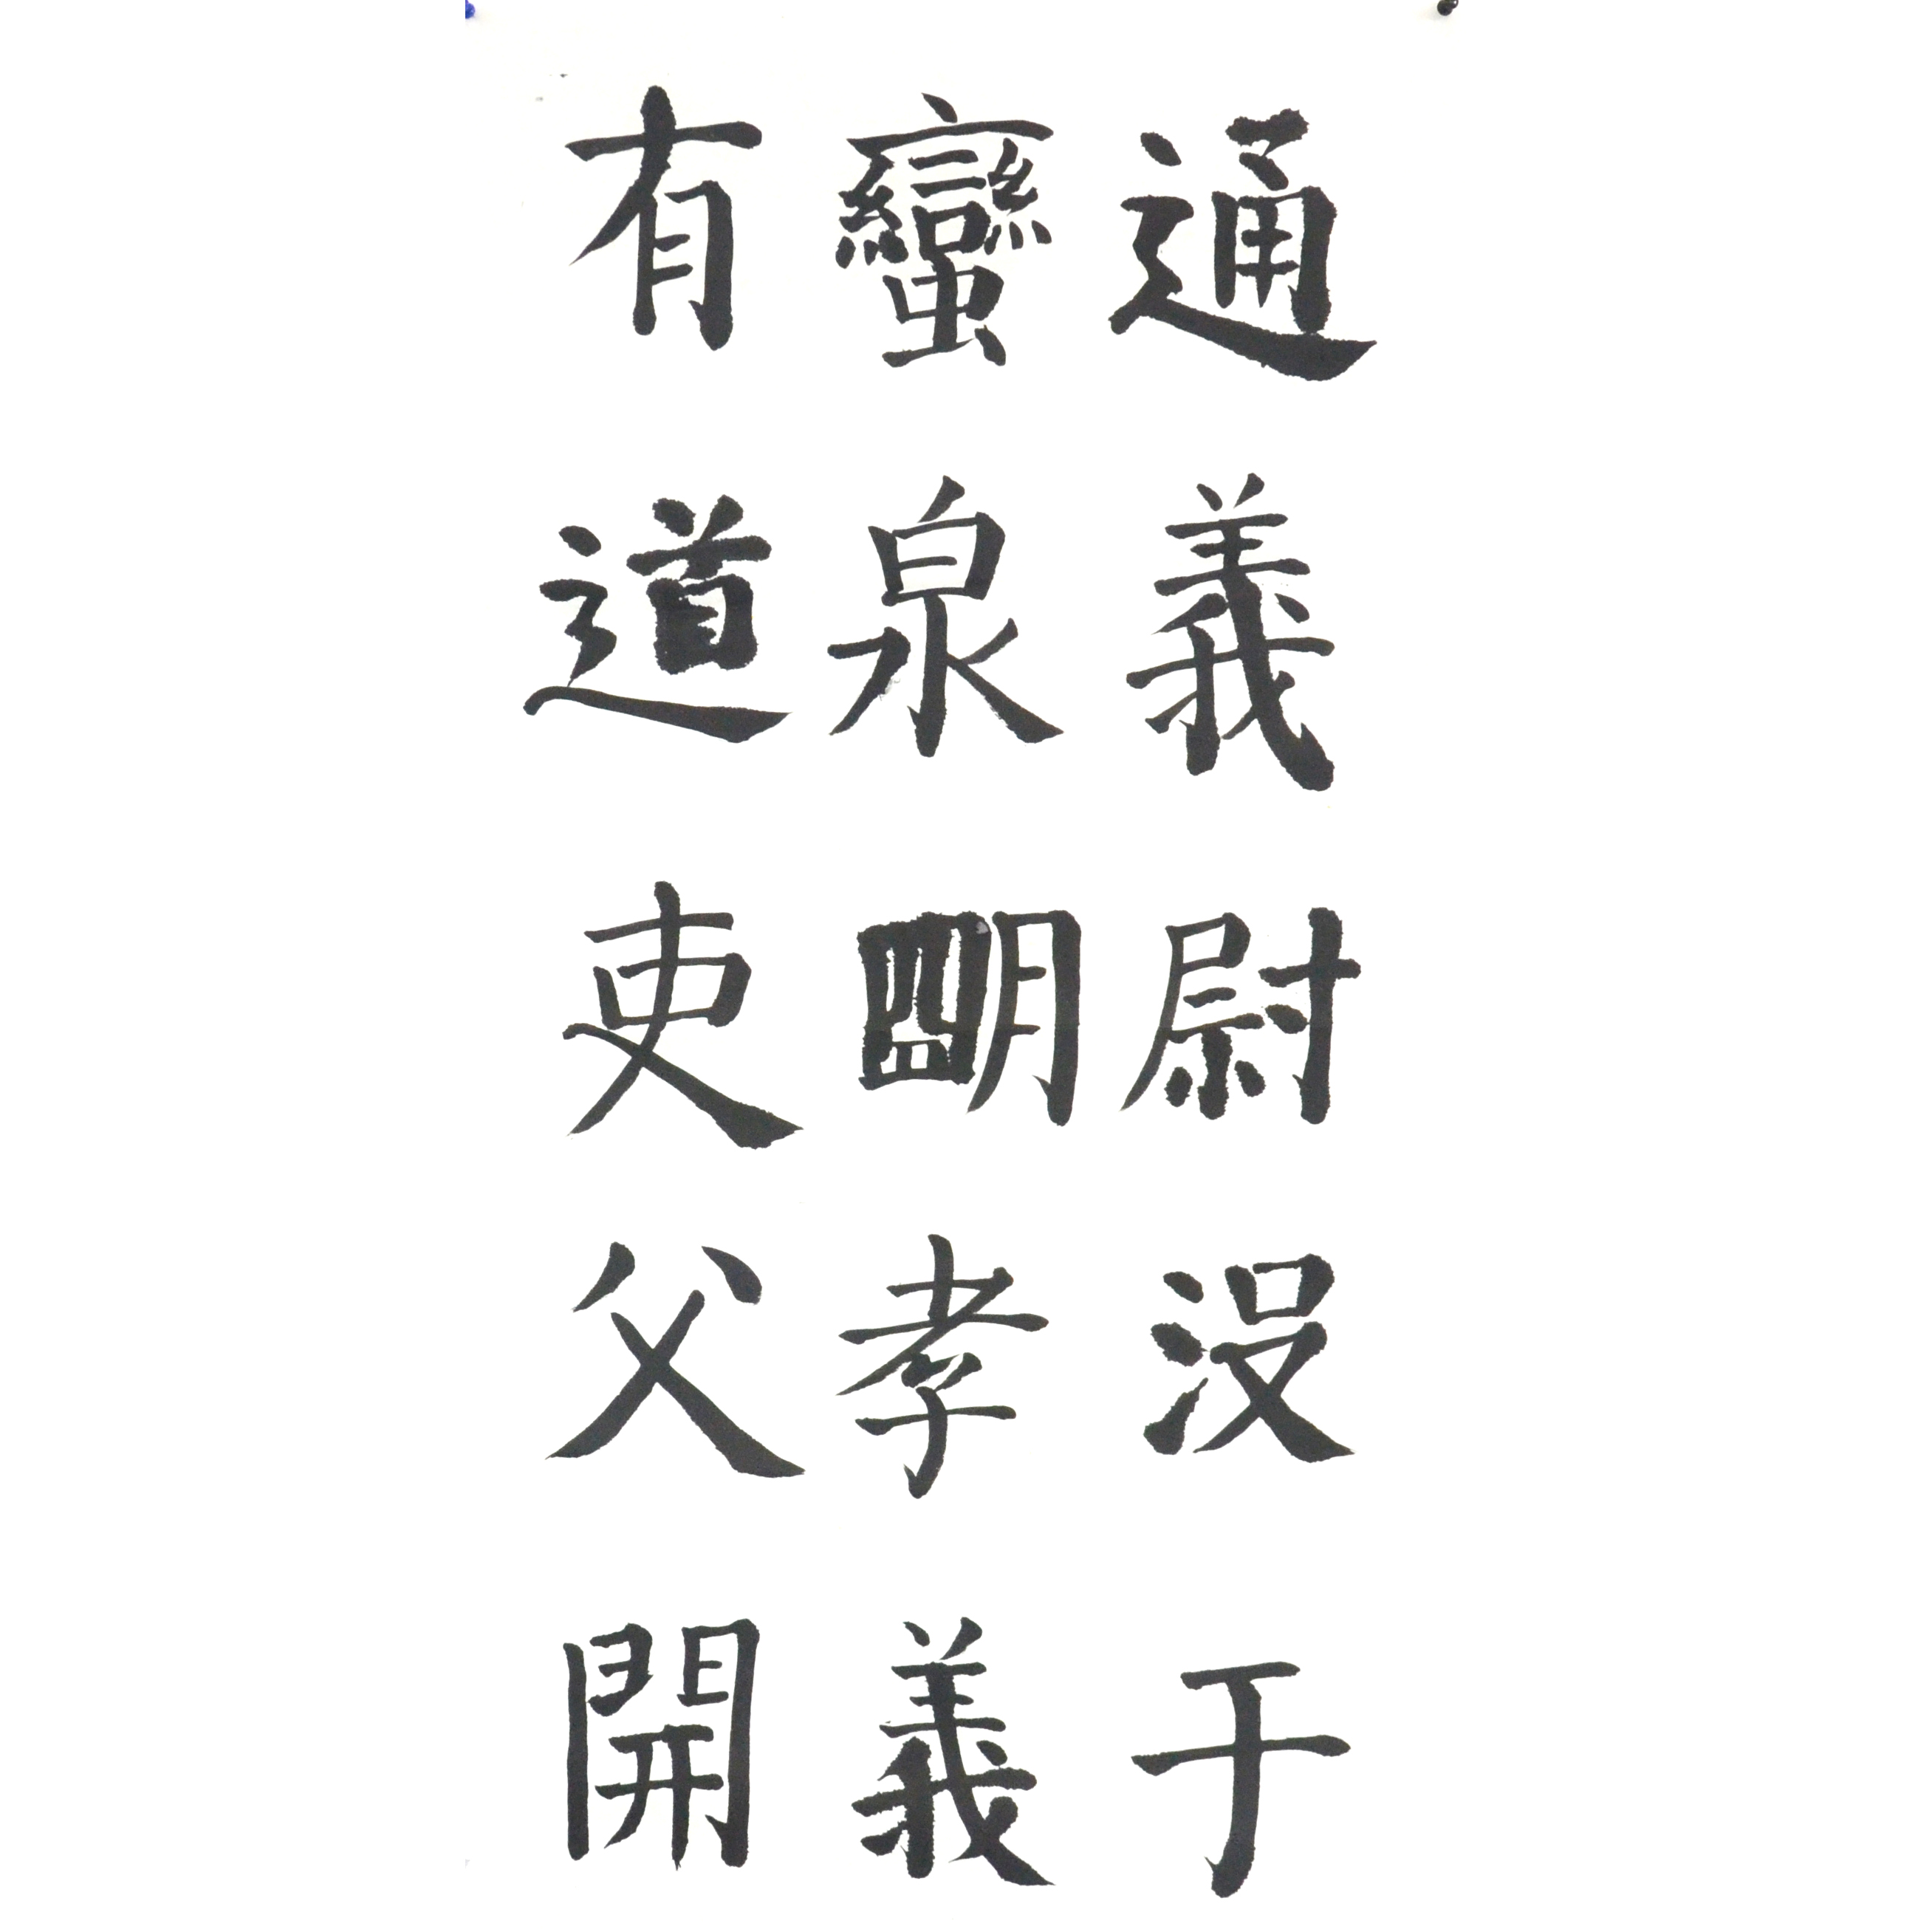 通義尉没于
蠻泉朙孝義
有道吏父開